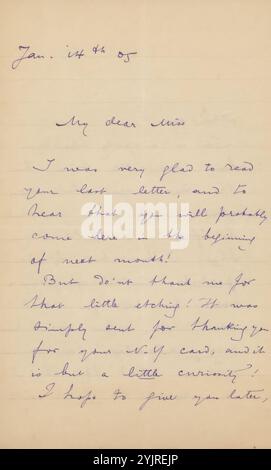 Jan. 14th 05
My dear Miss
I was very glad to read
your last letter, and to
hear that you will probably
come here in the beginning
of next month!
But do'nt thank me for
that little etching! It was
simply sent for thanking you
for your N.Y card, and it
is but a little curiosity!
I hope to give you later,
alamy
Image ID: 2YJREJP
www.alamy.com